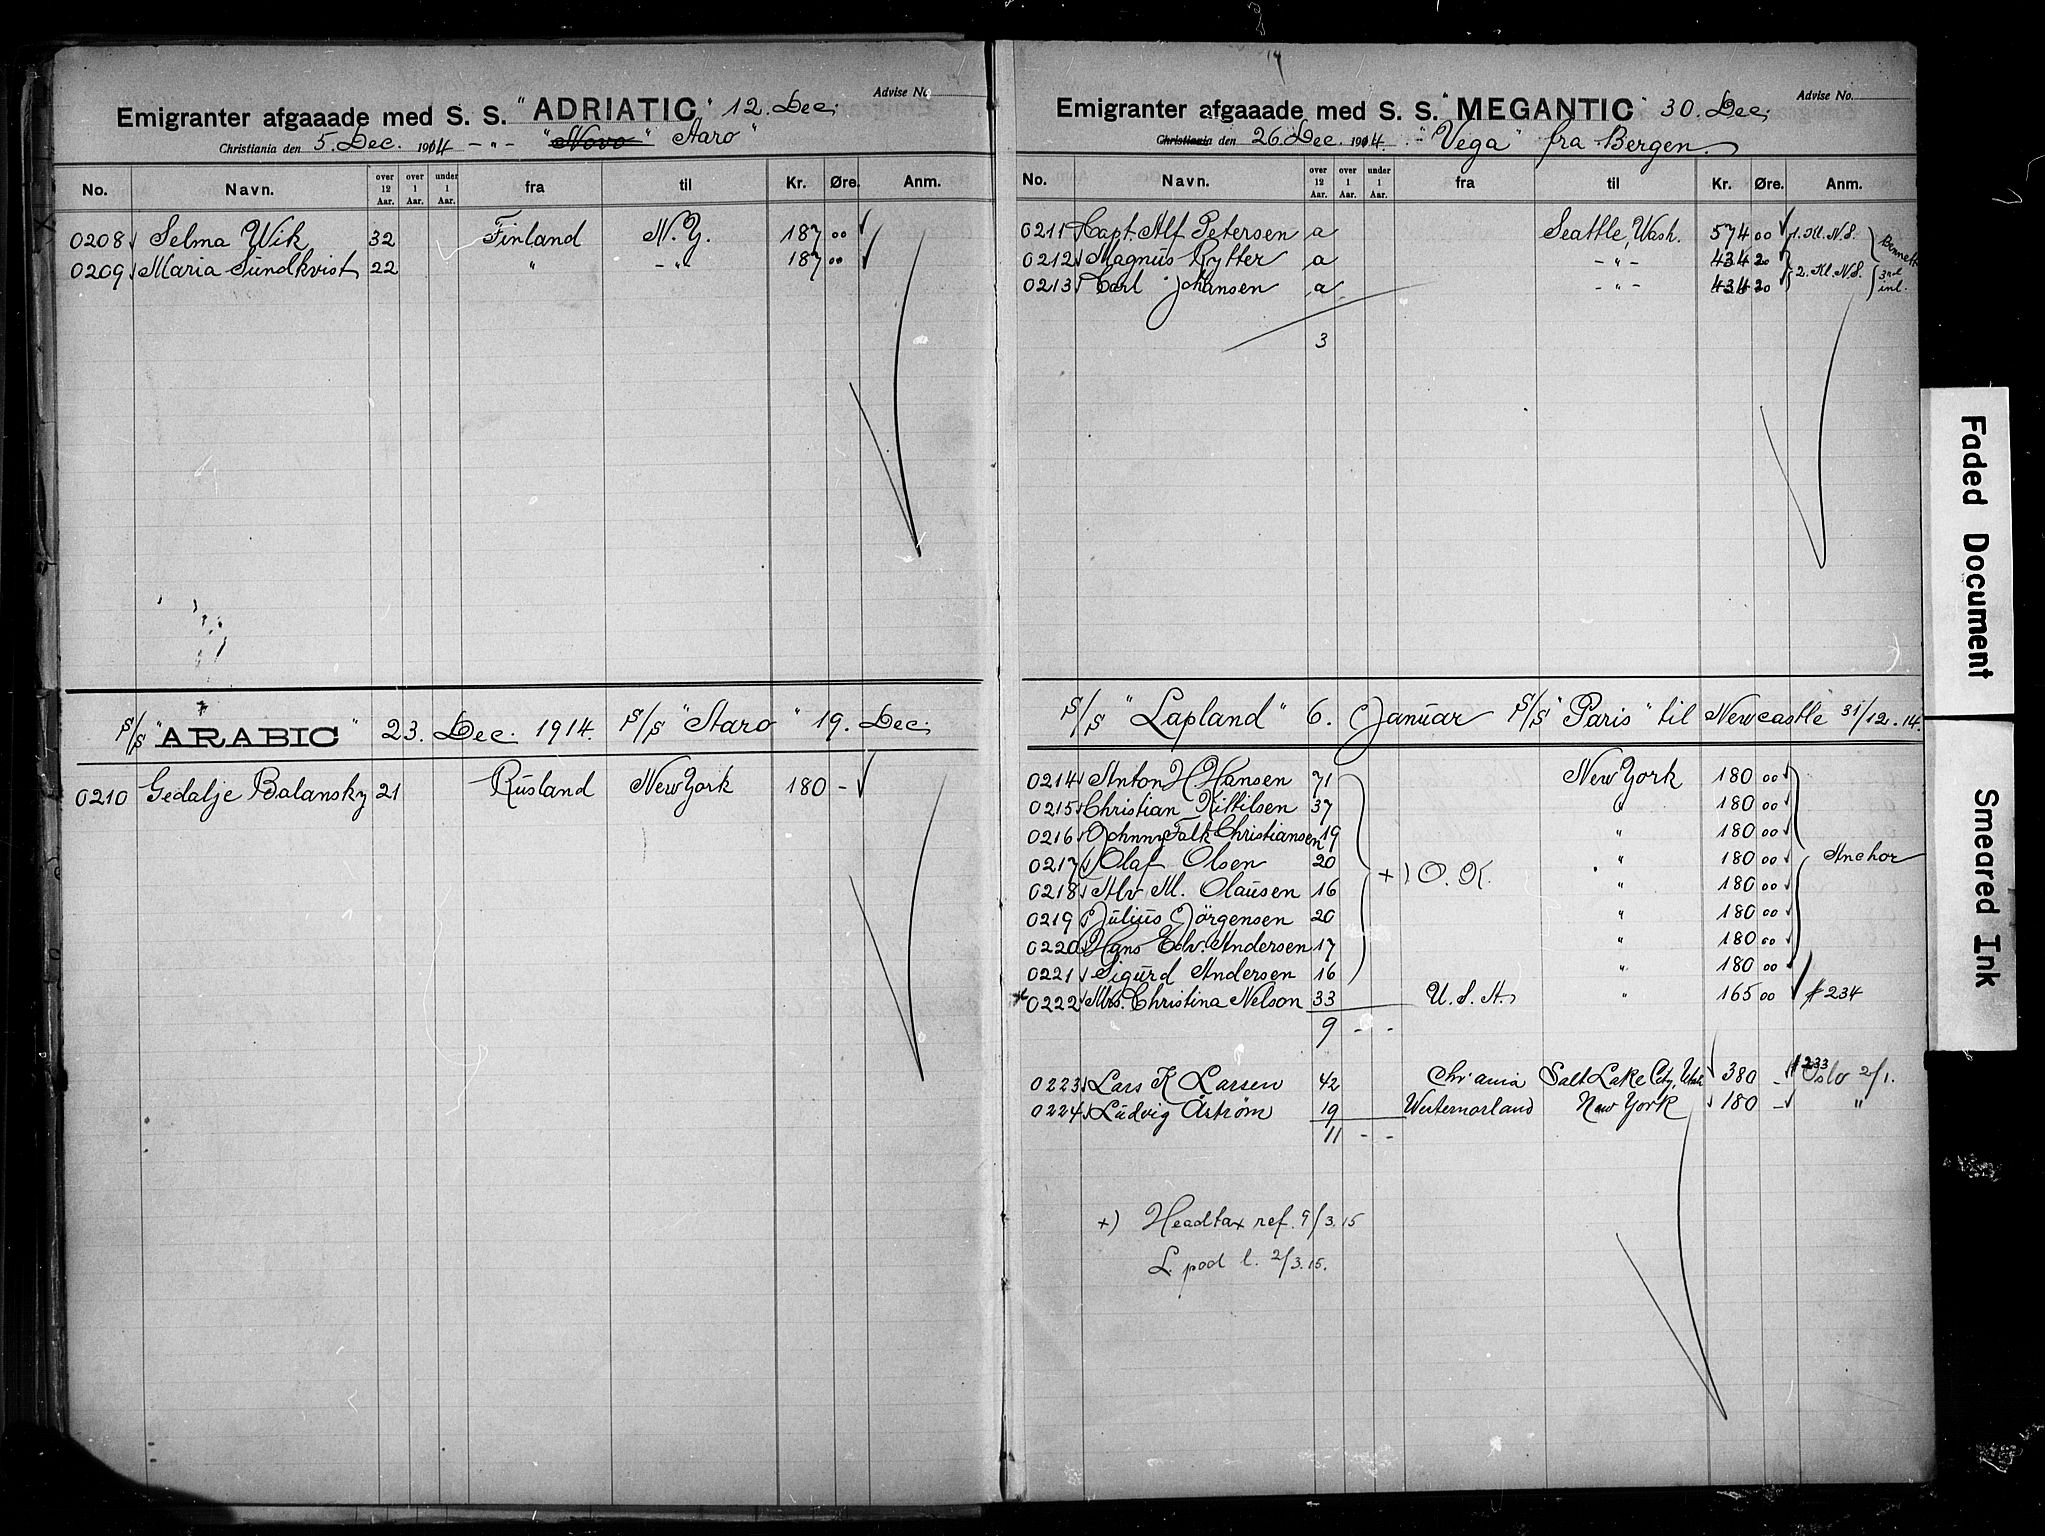 Advise No.
Emigranter afgaaade med S. S. "ADRIATIC" 12. Dec.
Christiania den 5. Dec. 1914 - " - "Novo" Aaro"
No. Navn. over 12 Aar. over 1 Aar. under 1 Aar. fra til Kr. Øre. Anm.
0208 Selma Wik 32 Finland N.Y. 187 00
0209 Maria Sundkvist 22 " - " - 187 00
S/S "ARABIC" 23. Dec. 1914. S/S "Aaro" 19. Dec.
0210 Gedalje Balansky 21 Rusland New York 180 -
14
Advise No.
Emigranter afgaaade med S. S. "MEGANTIC" 30. Dec.
Christiania den 26. Dec. 1914. "Vega" fra Bergen.
No. Navn. over 12 Aar. over 1 Aar. under 1 Aar. fra til Kr. Øre. Anm.
0211 Capt. Alf Petersen a Seattle, Wash. 574 00 1. Kl. N.S. Bennett
0212 Magnus Rytter a - " - 434 20 2. Kl. N.S. 3rd
0213 Carl Johansen a - " - 434 20 inl.
3
S/S "Lapland" 6. Januar S/S "Paris" til Newcastle 31/12.14.
0214 Anton H Hansen 71 New York 180 00
0215 Christian Kittilsen 37 " 180 00
0216 Johnny Falk Christiansen 19 " 180 00
0217 Olaf Olsen 20 +) O.K. " 180 00 Anchor
0218 Alv M. Olausen 16 " 180 00
0219 Julius Jörgensen 20 " 180 00
0220 Hans Edv. Andersen 17 " 180 00
0221 Sigurd Andersen 16 " 180 00
0222 Mrs. Christina Nelson 33 U.S.A. " 165 00 # 234
9 - -
0223 Lars K Larsen 42 Chr'ania Salt Lake Cty, Utah 380 - # 233 Oslo 2/1.
0224 Ludvig Åström 19 Westernorland New York 180 - "
11 - -
+) Headtax ref. 9/3.15
L. pod l. 2/3.15.
Faded Document
Smeared Ink